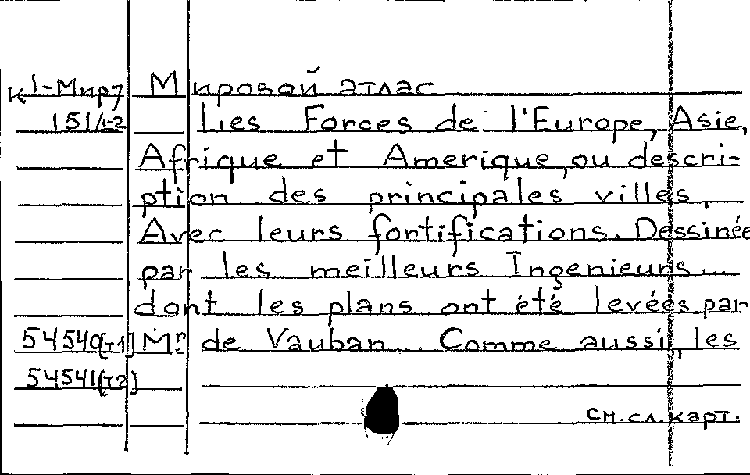 К1-Мир7 Мировой атлас
151/1-2 Les Forces de l'Europe, Asie,
Afrique et Amerique, ou descri-
ption des principales villes,
Avec leurs fortifications. Dessinée
par les meilleurs Ingenieurs...
dont les plans ont été levées par
54540(т1) Mr de Vauban. Comme aussi, les
54541(т2)
см.сл.карт.